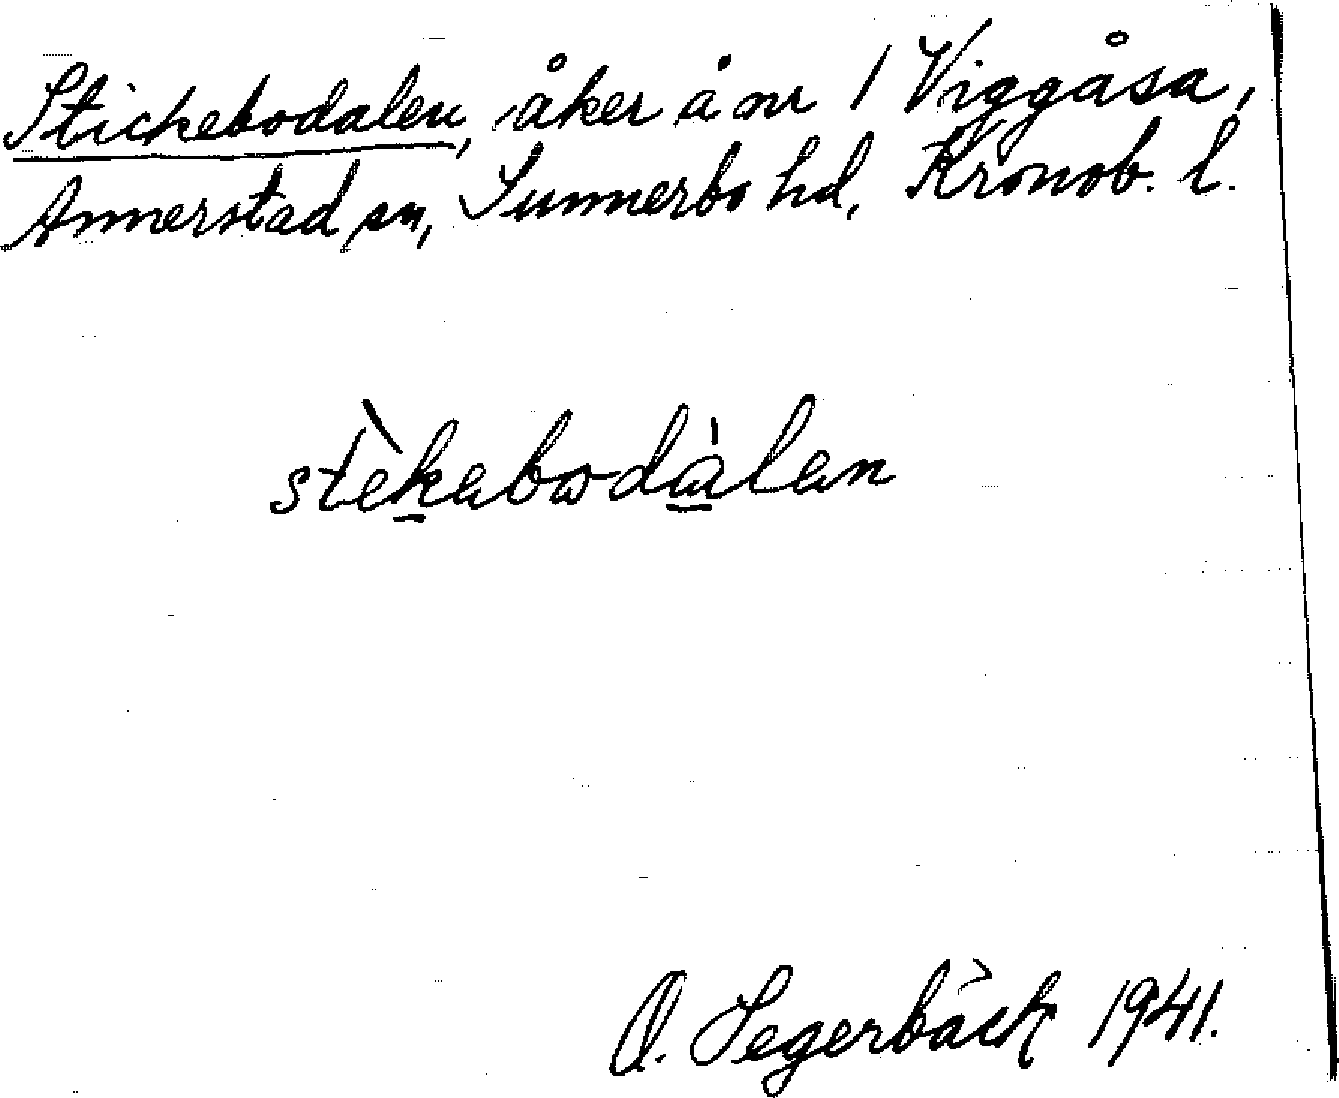 Stickebodalen, åker å nr 1 Viggåsa,
Annerstad sn, Sunnerbo hd, Kronob. l.
stèkabodàlen
O. Segerbäck 1941.